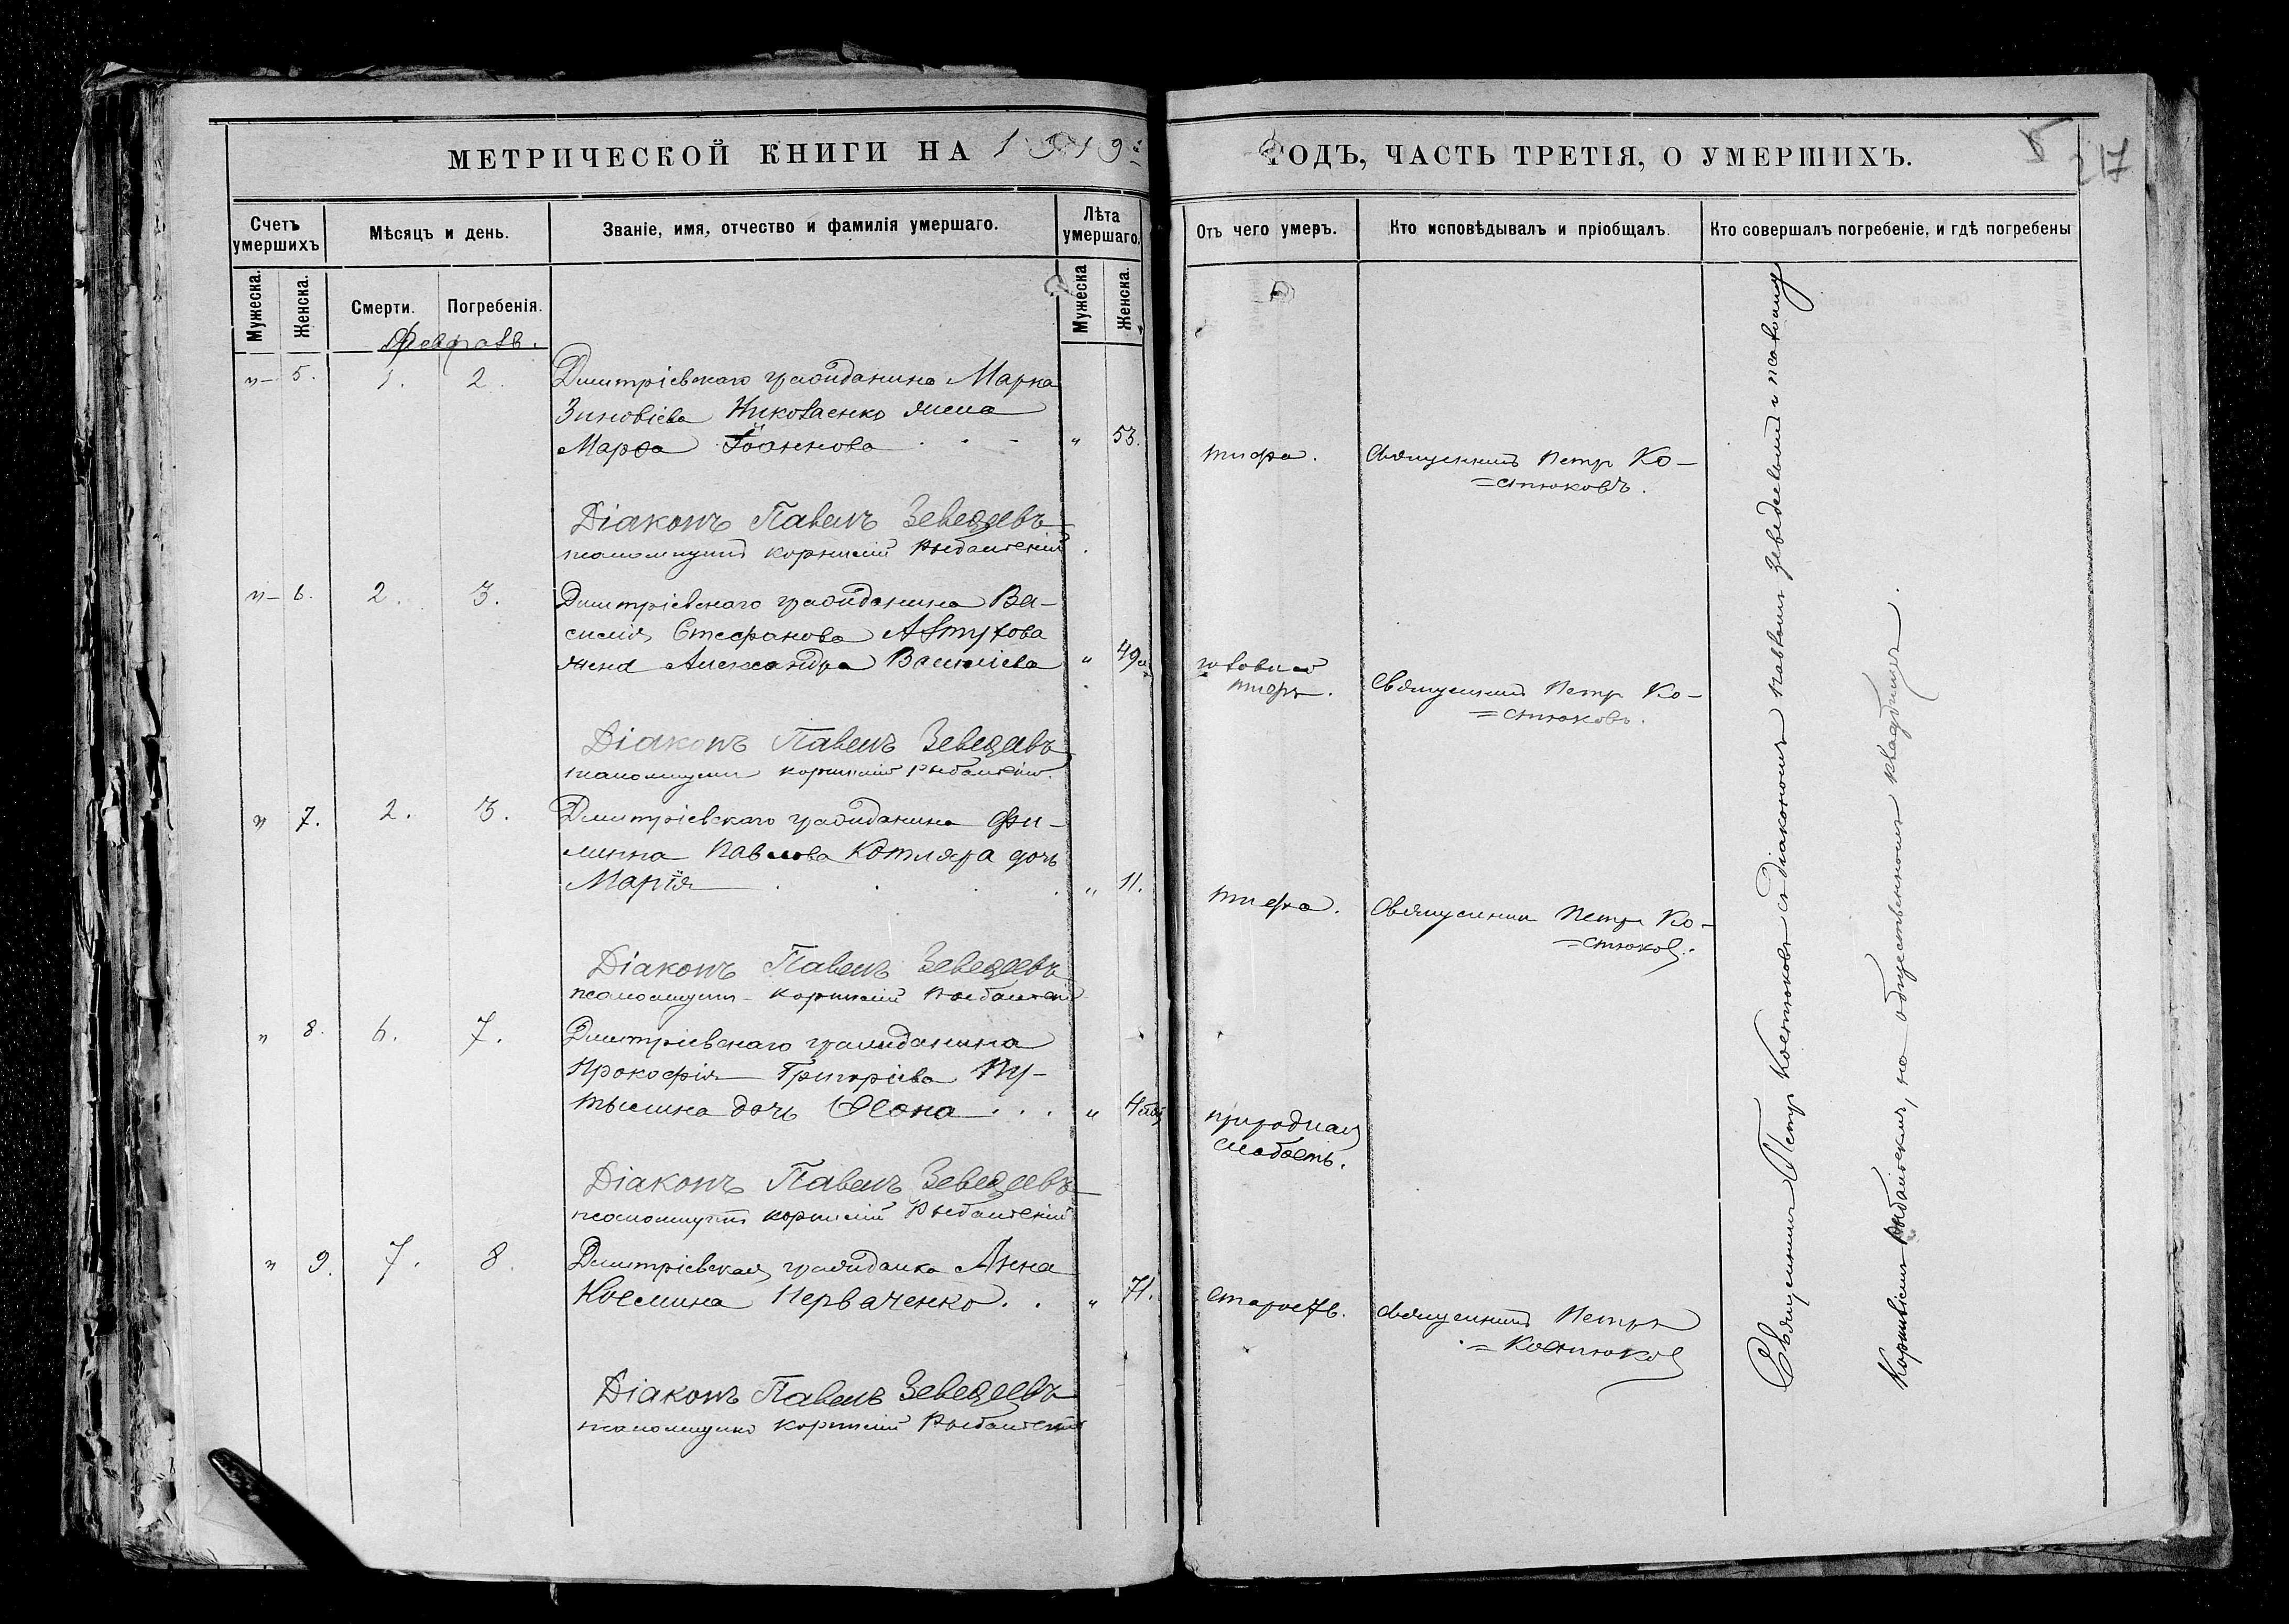 МЕТРИЧЕСКОЙ КНИГИ НА 1919
ГОДЪ, ЧАСТЬ ТРЕТІЯ, О УМЕРШИХЪ.
5
217
Счетъ умершихъ
Мѣсяцъ и день.
Званіе, имя, отчество и фамилія умершаго.
Лѣта умершаго.
Отъ чего умеръ.
Кто исповѣдывалъ и пріобщалъ.
Кто совершалъ погребеніе, и гдѣ погребены
Мужеска.
Женска.
Смерти.
Погребенія.
Мужеска
Женска.
Февраль.
„ 5. 1. 2. Дмитріевскаго гражданина Марка
Зиновіева Николаенко жена
Марѳа Іоаннова „ 53.
тифа. Священникъ Петръ Ко-
=стюковъ.
Діаконъ Павелъ Зеведеевъ
псаломщикъ Корнилій
„ 6. 2. 3. Дмитріевскаго гражданина Ва-
силія Стефанова Автухова
жена Александра Василіева „ 49
головной
тифъ. Священникъ Петръ Ко-
=стюковъ.
Діаконъ Павелъ Зеведеевъ
псаломщикъ Корнилій
„ 7. 2. 3. Дмитріевскаго гражданина Фи-
липпа Павлова Котляра дочь
Марія „ 11.
тифа. Священникъ Петръ Ко-
=стюковъ.
Діаконъ Павелъ Зеведеевъ
псаломщикъ Корнилій
„ 8. 6. 7. Дмитріевскаго гражданина
Прокофія Григоріева Пу-
тылина дочь „ 4
природная
слабость.
Діаконъ Павелъ Зеведеевъ
псаломщикъ Корнилій
„ 9. 7. 8. Дмитріевская гражданка Анна
Косьмина Перваченко. „ 71.
старость. Священникъ Петръ
=Костюковъ
Діаконъ Павелъ Зеведеевъ
псаломщикъ Корнилій
Священникъ Петръ Костюковъ съ діакономъ Павломъ Зеведеевымъ и псаломщ
Корниліемъ на общественномъ кладбищѣ.